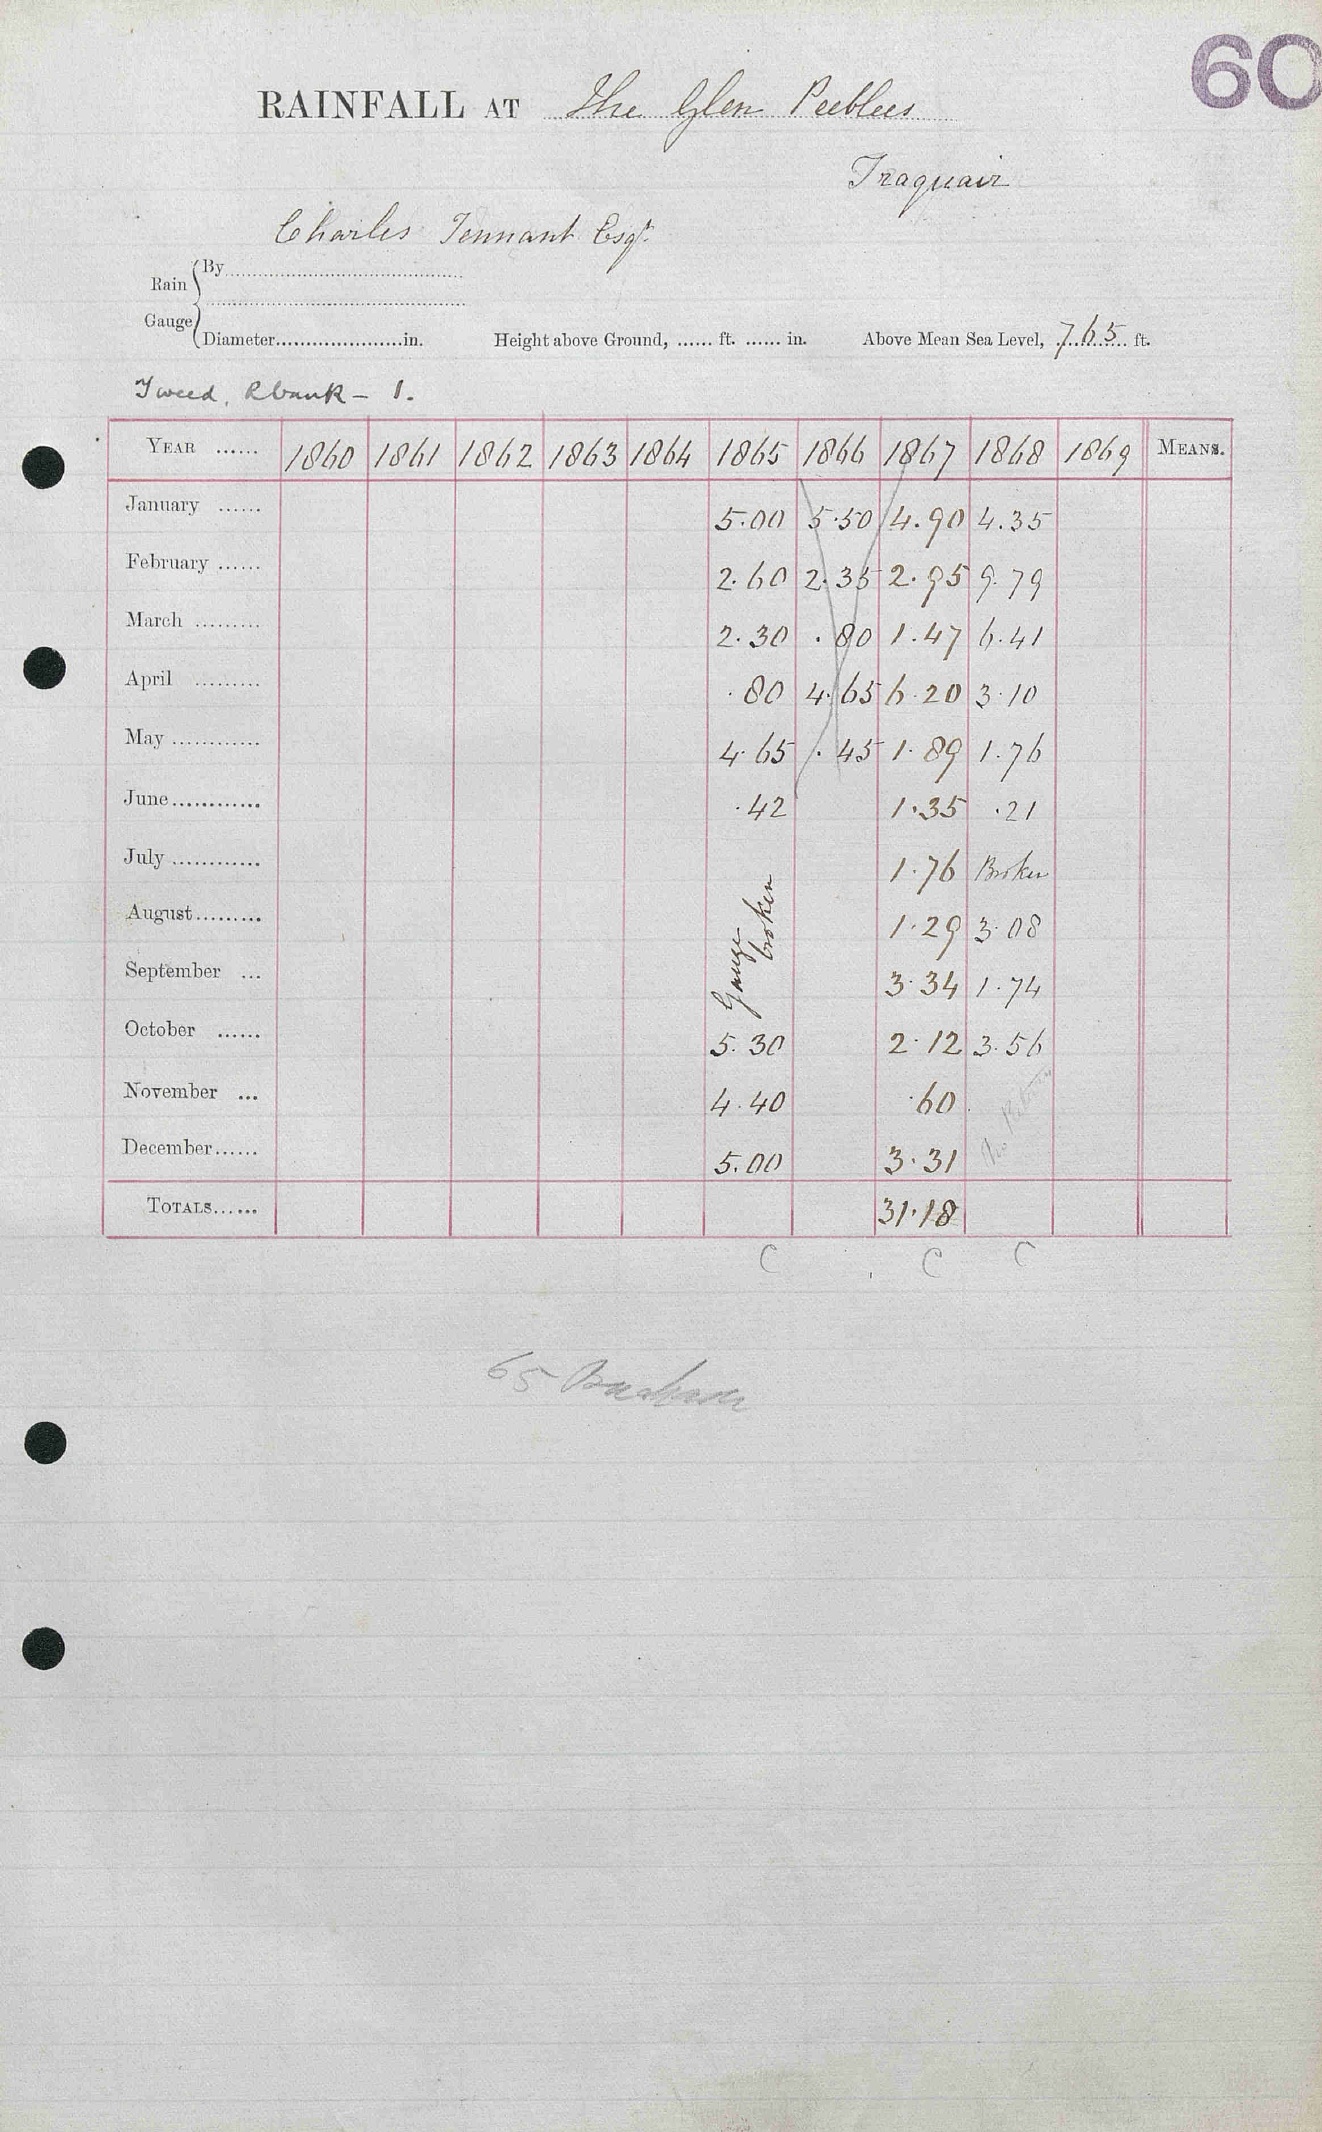 60
RAINFALL AT The Glen Peebles
Traquair
Charles Tennant Esqr.
Rain Gauge { By
Diameter in. Height above Ground, ...... ft. ...... in. Above Mean Sea Level, 765 ft.
Tweed, Rbank - 1.
YEAR ...... 1860 1861 1862 1863 1864 1865 1866 1867 1868 1869 MEANS.
January ...... 5.00 5.50 4.90 4.35
February ...... 2.60 2.35 2.95 9.79
March ......... 2.30 .80 1.47 6.41
April ......... .80 4.65 6.20 3.10
May ............ 4.65 .45 1.89 1.76
June............ .42 1.35 .21
July ............ Gauge broken 1.76 Broken
August......... 1.29 3.08
September ... 3.34 1.74
October ...... 5.30 2.12 3.56
November ... 4.40 .60 No Return
December...... 5.00 3.31
TOTALS...... 31.18
C C C
65